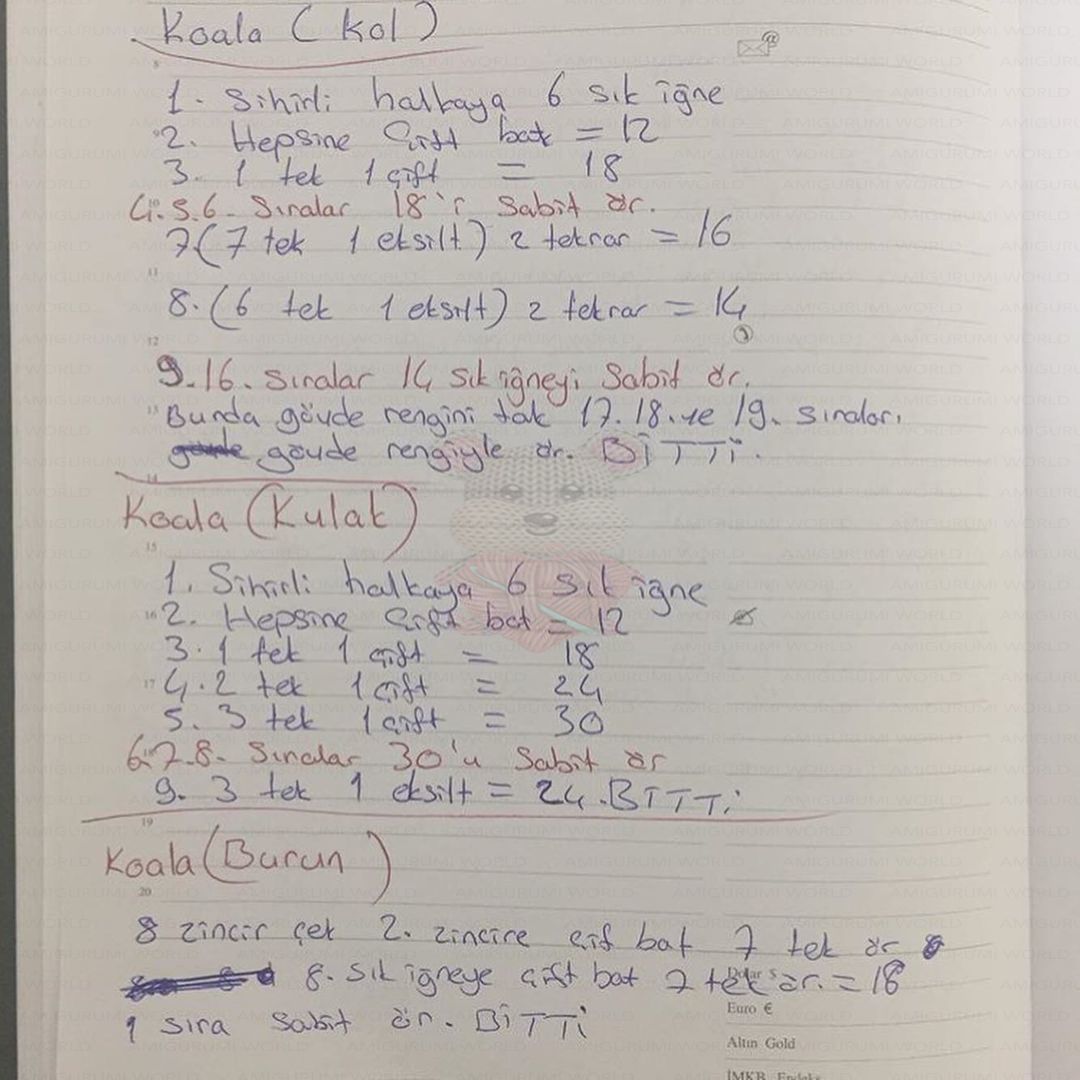 Koala ( kol )
8
1. Sihirli halkaya 6 sık iğne
9
2. Hepsine Çift bat = 12
3. 1 tek 1 çift = 18
10
4.5.6. Sıralar 18'i Sabit ör.
7(7 tek 1 eksilt) 2 tekrar = 16
11
8. (6 tek 1 eksilt) 2 tekrar = 14
12
9.16. Sıralar 14 sık iğneyi Sabit ör.
13
Bunda gövde rengini tak 17.18. ve 19. sıraları
gövde rengiyle ör. BİTTİ.
14
Koala (Kulak)
15
1. Sihirli halkaya 6 sık iğne
16
2. Hepsine Çift bat = 12
3. 1 tek 1 çift = 18
17
4. 2 tek 1 çift = 24
5. 3 tek 1 çift = 30
18
6.7.8. Sıralar 30'u Sabit ör
9. 3 tek 1 eksilt = 24. BİTTİ
19
Koala (Burun)
20
8 zincir çek 2. zincire çif bat 7 tek ör
8. Sık iğneye çift bat 7 tek ör. = 18
Dolar $
1 sıra Sabit ör. BİTTİ
Euro €
Altın Gold
İMKB Endeks
AMIGURUMI WORLD